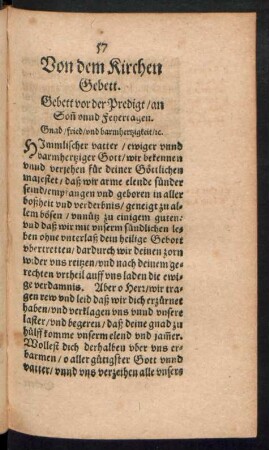 57
Von dem Kirchen
Gebett.
Gebett vor der Predigt / an
Soñ vnnd Feyertagen.
Gnad / fried / vnd barmhertzigkeit / ꝛc.
HImmlischer vatter / ewiger vnnd
barmhertziger Gott / wir bekennen
vnnd verjehen für deiner Göttlichen
majestet / daß wir arme elende sünder
seind / empfangen vnd geboren in aller
boßheit vnd verderbnis / geneigt zu al
lem bösen / vnnütz zu einigem guten:
vnd daß wir mit vnserm sündlichen le
ben ohne vnterlaß dein heilige Gebott
vbertretten / dardurch wir deinen zorn
wider vns reitzen / vnd nach deinem ge
rechten vrtheil auff vns laden die ewi
ge verdamnis. Aber o Herr / wir tra
gen rew vnd leid daß wir dich erzürnet
haben / vnd verklagen vns vnnd vnsere
laster / vnd begeren / daß deine gnad zu
hülff komme vnserm elend vnd jam̃er.
Wollest dich derhalben vber vns er-
barmen / o aller gütigster Gott vnnd
vatter / vnnd vns verzeihen alle vnsere